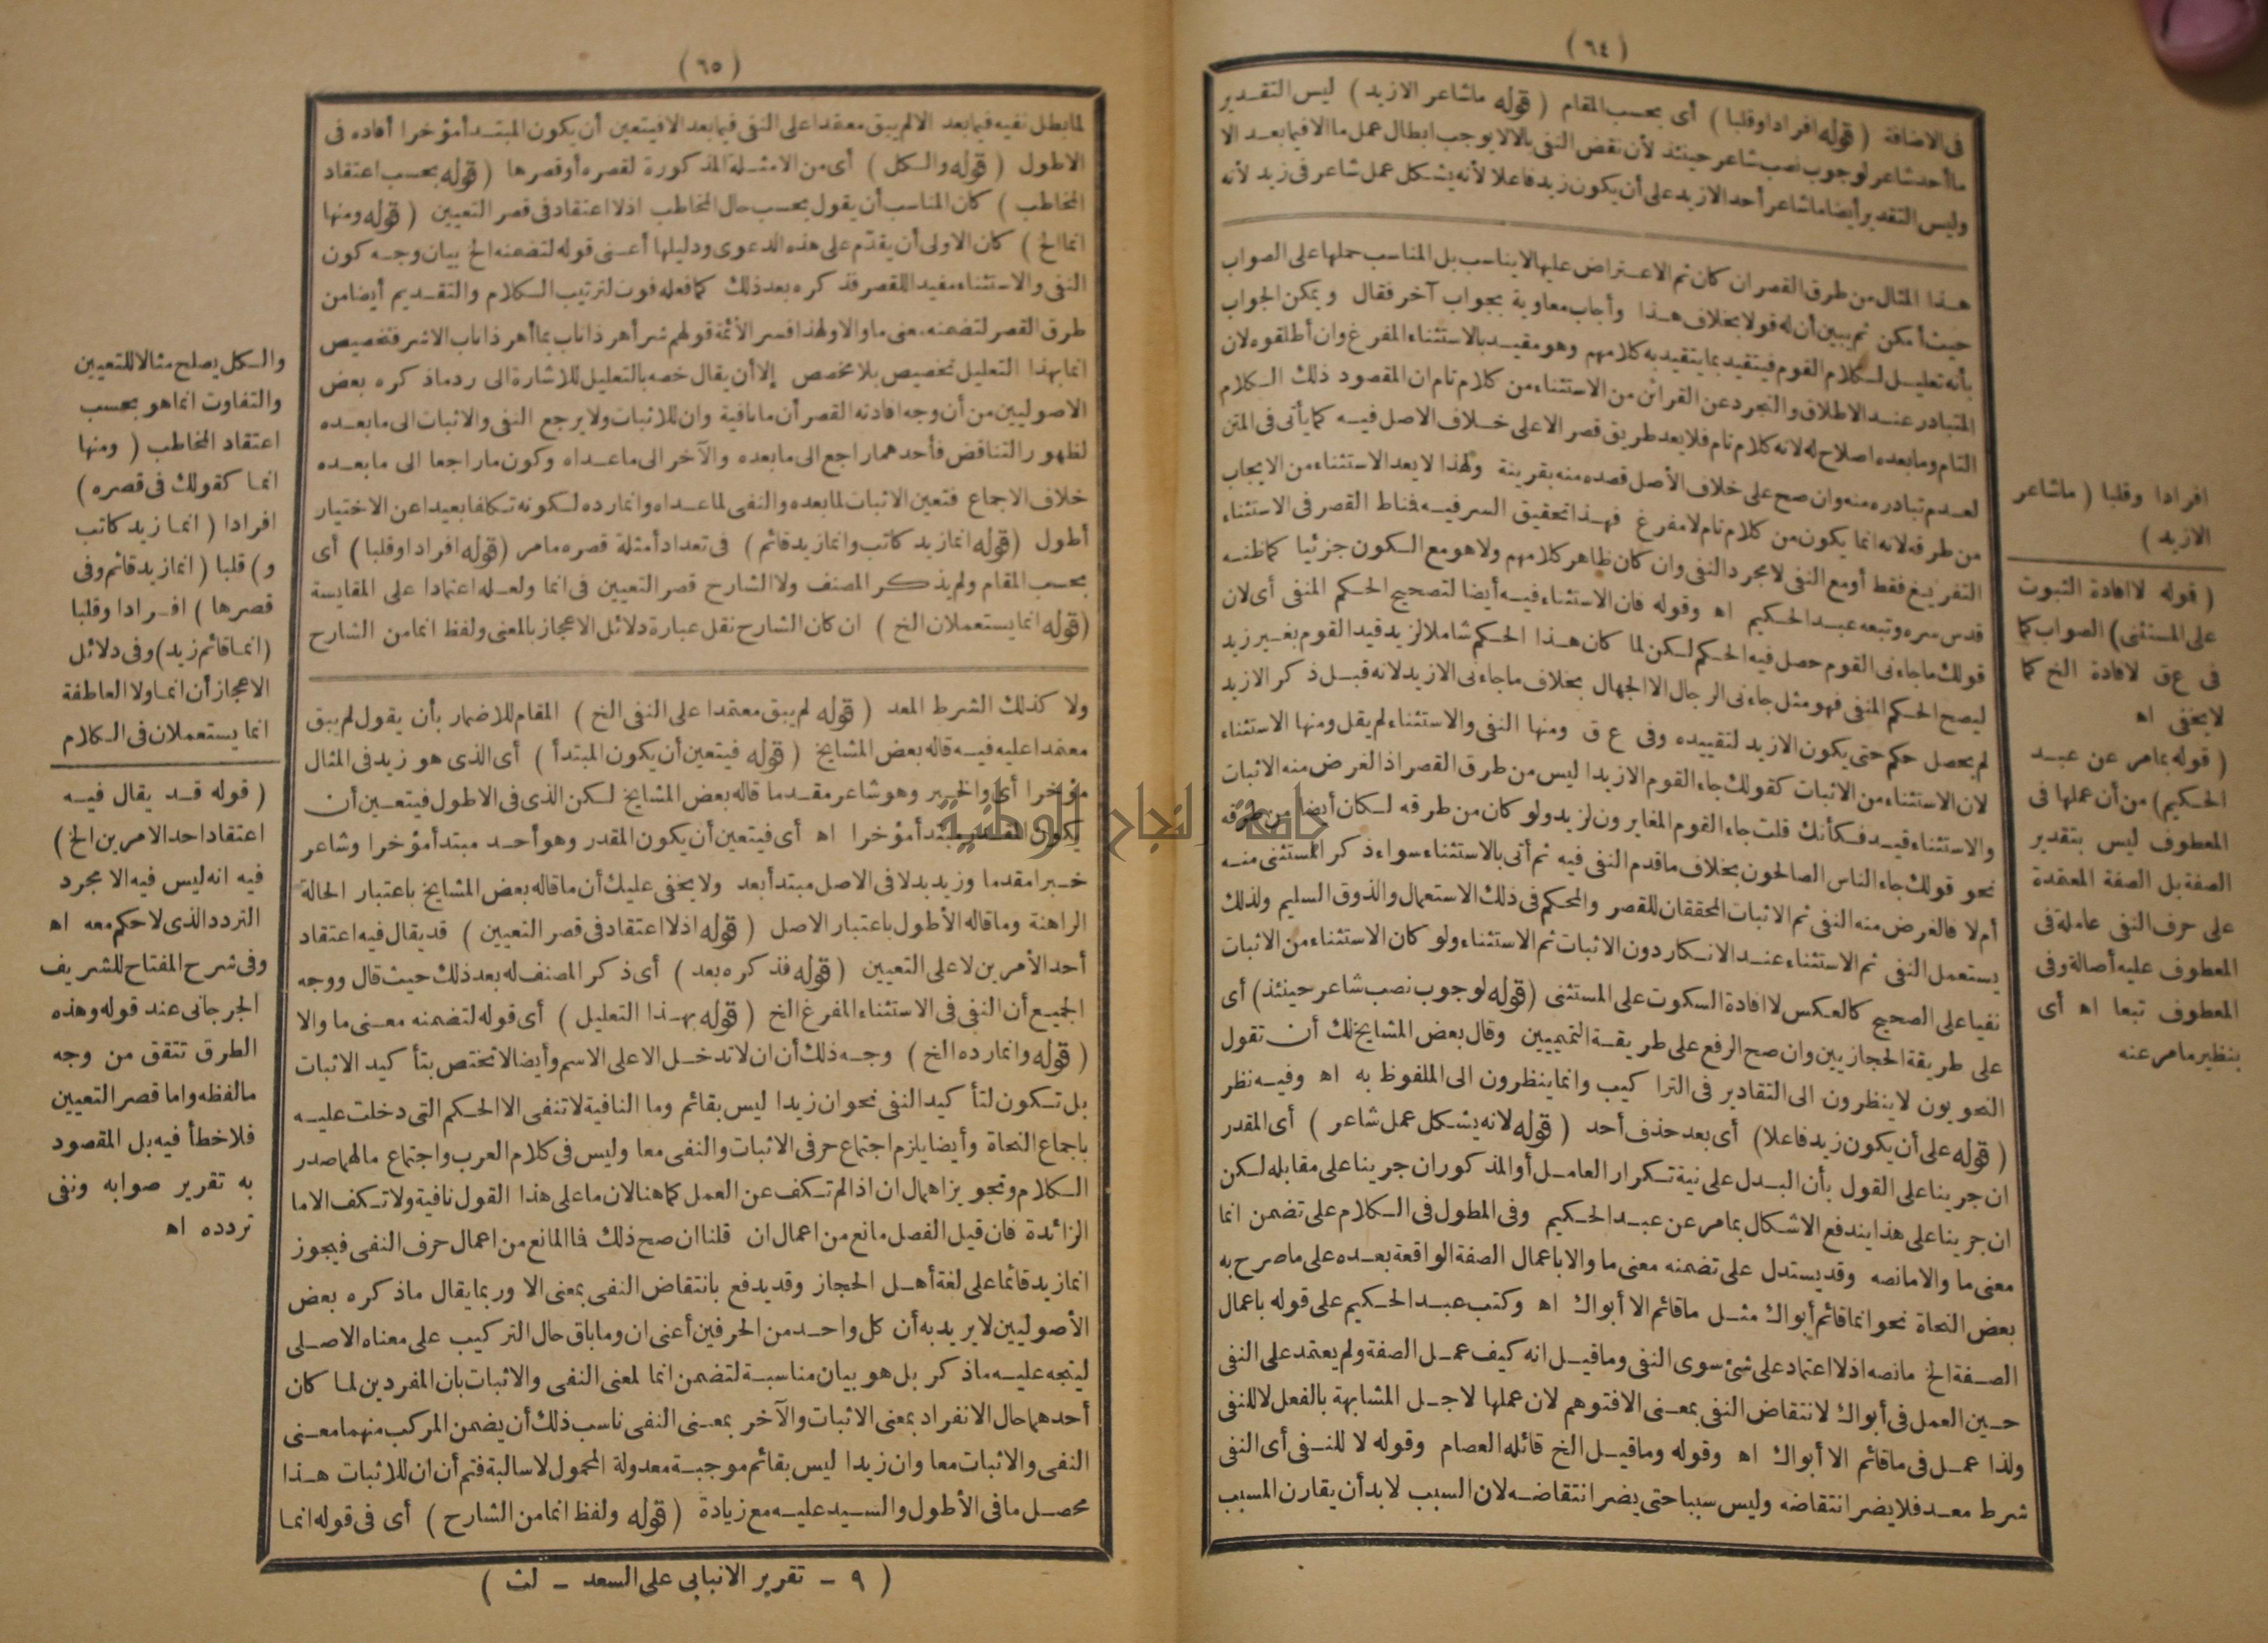 ( ٦٤ )
فى الاضافة ( قوله افرادا وقلبا ) أى بحسب المقام ( قوله ماشاعر الازيد ) ليس التقدير
ما أحد شاعر لوجوب نصب شاعر حينئذ لأن نقض النفى بالا لايوجب ابطال عمل ما الافيما بعد الا
وليس التقدير أيضا ماشاعر أحد الازيد على أن يكون زيد فاعلا لأنه يشكل عمل شاعر فى زيد لأنه
هذا المثال من طرق القصر ان كان ثم الاعتراض عليها لايناسب بل المناسب حملها على الصواب
حيث أمكن ثم يبين أن له قولا بخلاف هذا وأجاب معاوية بجواب آخر فقال ويمكن الجواب
بأنه تعليل لكلام القوم فيتقيد بما يتقيد به كلامهم وهو مقيد بالاستثناء المفرغ وان أطلقوه لان
المتبادر عند الاطلاق والتجرد عن القرائن من الاستثناء من كلام تام ان المقصود ذلك الكلام
التام وما بعده اصلاح له لانه كلام تام فلا يعد طريق قصر الاعلى خلاف الاصل فيه كما يأتى فى المتن
لعدم تبادره منه وان صح على خلاف الأصل قصده منه بقرينة ولهذا لا يعد الاستثناء من الايجاب
من طرقه لانه انما يكون من كلام تام لامفرغ فهذا تحقيق السر فيه فناط القصر فى الاستثناء
التفريغ فقط أو مع النفى لا مجرد النفى وان كان ظاهر كلامهم ولا هو مع السكون جزئيا كما ظنه
قدس سره وتبعه عبد الحكيم اه وقوله فان الاستثناء فيه أيضا لتصحيح الحكم المنفى أى لان
قولك ما جاءنى القوم حصل فيه الحكم لكن لما كان هذا الحكم شاملا لزيد قيد القوم بغير زيد
ليصح الحكم المنفى فهو مثل جاءنى الرجال الا الجهال بخلاف ما جاءنى الازيد لانه قبل ذكر الازيد
لم يحصل حكم حتى يكون الازيد لتقييده وفى ع ق ومنها النفى والاستثناء لم يقل ومنها الاستثناء
لان الاستثناء من الاثبات كقولك جاء القوم الازيدا ليس من طرق القصر اذ الغرض منه الاثبات
والاستثناء قيد فكأنك قلت جاء القوم المغايرون لزيد ولو كان من طرقه لكان أيضا من طرقه
نحو قولك جاء الناس الصالحون بخلاف ما قدم النفى فيه ثم أتى بالاستثناء سواء ذكر المستثنى منه
أم لا فالغرض منه النفى ثم الاثبات المحققان للقصر والمحكم فى ذلك الاستعمال والذوق السليم ولذلك
يستعمل النفى ثم الاستثناء عند الانكار دون الاثبات ثم الاستثناء ولو كان الاستثناء من الاثبات
نفيا على الصحيح كالعكس لا افادة السكوت على المستثنى (قوله لوجوب نصب شاعر حينئذ) أى
على طريقة الحجازيين وان صح الرفع على طريقة التميميين وقال بعض المشايخ لك أن تقول
النحويون لا ينظرون الى التقادير فى التراكيب وانما ينظرون الى الملفوظ به اه وفيه نظر
( قوله على أن يكون زيد فاعلا) أى بعد حذف أحد ( قوله لانه يشكل عمل شاعر ) أى المقدر
ان جرينا على القول بأن البدل على نية تكرار العامل أو المذكور ان جرينا على مقابله لكن
ان جرينا على هذا يندفع الاشكال بما مر عن عبد الحكيم وفى المطول فى الكلام على تضمن انما
معنى ما والا مانصه وقد يستدل على تضمنه معنى ما والا باعمال الصفة الواقعة بعده على ما صرح به
بعض النحاة نحو انما قائم أبواك مثل ماقائم الا أبواك اه وكتب عبد الحكيم على قوله باعمال
الصفة الخ مانصه اذ لا اعتماد على شئ سوى النفى وما قيل انه كيف عمل الصفة ولم يعتمد على النفى
حين العمل فى أبواك لانتقاض النفى بمعنى الا فتوهم لان عملها لاجل المشابهة بالفعل لا للنفى
ولذا عمل فى ماقائم الا أبواك اه وقوله وما قيل الخ قائله العصام وقوله لا للنفى أى النفى
شرط معد فلا يضر انتقاضه وليس سببا حتى يضر انتقاضه لان السبب لابد أن يقارن المسبب
افرادا وقلبا ( ماشاعر
الازيد )
( قوله لا افادة الثبوت
على المستثنى) الصواب كما
فى ع ق لافادة الخ كما
لا يخفى اه
( قوله بما مر عن عبد
الحكيم) من أن عملها فى
المعطوف ليس بتقدير
الصفة بل الصفة المعتمدة
على حرف النفى عاملة فى
المعطوف عليه أصالة وفى
المعطوف تبعا اه أى
بنظير ما مر عنه
( ٦٥ )
لما بطل نفيه فيما بعد الا لم يبق معتمدا على النفى فيما بعد الا فيتعين أن يكون المبتدأ مؤخرا أفاده فى
الاطول ( قوله والكل ) أى من الامثلة المذكورة لقصره أو قصرها ( قوله بحسب اعتقاد
المخاطب ) كان المناسب أن يقول بحسب حال المخاطب اذ لا اعتقاد فى قصر التعيين ( قوله ومنها
انما الخ ) كان الاولى أن يقدم على هذه الدعوى ودليلها أعنى قوله لتضمنه الخ بيان وجه كون
النفى والاستثناء مفيدا للقصر فذكره بعد ذلك كما فعله فوت لترتيب الكلام والتقديم أيضا من
طرق القصر لتضمنه معنى ما والا ولهذا فسر الأئمة قولهم شر أهر ذا ناب بما أهر ذا ناب الاشر فتخصيص
انما بهذا التعليل تخصيص بلا مخصص إلا أن يقال خصه بالتعليل للاشارة الى رد ماذكره بعض
الاصوليين من أن وجه افادته القصر أن ما نافية وان للاثبات ولا يرجع النفى والاثبات الى ما بعده
لظهور التناقض فأحدهما راجع الى ما بعده والآخر الى ما عداه وكون ما راجعا الى ما بعده
خلاف الاجماع فتعين الاثبات لما بعده والنفى لما عداه وانما رده لكونه تكلفا بعيدا عن الاختيار
أطول (قوله انما زيد كاتب وانما زيد قائم ) فى تعداد أمثلة قصره مامر (قوله افرادا وقلبا) أى
بحسب المقام ولم يذكر المصنف ولا الشارح قصر التعيين فى انما ولعله اعتمادا على المقايسة
(قوله انما يستعملان الخ ) ان كان الشارح نقل عبارة دلائل الاعجاز بالمعنى ولفظ انما من الشارح
ولا كذلك الشرط المعد ( قوله لم يبق معتمدا على النفى الخ ) المقام للاضمار بأن يقول لم يبق
معتمدا عليه فيه قاله بعض المشايخ ( قوله فيتعين أن يكون المبتدأ ) أى الذى هو زيد فى المثال
مؤخرا أى والخبر وهو شاعر مقدما قاله بعض المشايخ لكن الذى فى الاطول فيتعين أن
يكون المقدر مبتدأ مؤخرا اه أى فيتعين أن يكون المقدر وهو أحد مبتدأ مؤخرا وشاعر
خبرا مقدما وزيد بدلا فى الاصل مبتدأ بعد ولا يخفى عليك أن ما قاله بعض المشايخ باعتبار الحالة
الراهنة وما قاله الأطول باعتبار الاصل ( قوله اذ لا اعتقاد فى قصر التعيين ) قد يقال فيه اعتقاد
أحد الأمرين لا على التعيين ( قوله فذكره بعد ) أى ذكر المصنف له بعد ذلك حيث قال ووجه
الجميع أن النفى فى الاستثناء المفرغ الخ ( قوله بهذا التعليل ) أى قوله لتضمنه معنى ما والا
( قوله وانما رده الخ ) وجه ذلك أن ان لا تدخل الا على الاسم وأيضا لا تختص بتأكيد الاثبات
بل تكون لتأكيد النفى نحو ان زيدا ليس بقائم وما النافية لا تنفى الا الحكم التى دخلت عليه
باجماع النحاة وأيضا يلزم اجتماع حرفى الاثبات والنفى معا وليس فى كلام العرب واجتماع مالهما صدر
الكلام وتجويز اهمال ان اذا لم تكف عن العمل كما هنا لان ما على هذا القول نافية ولا تكف الا ما
الزائدة فان قيل الفصل مانع من اعمال ان قلنا ان صح ذلك فالمانع من اعمال حرف النفى فيجوز
انما زيد قائما على لغة أهل الحجاز وقد يدفع بانتقاض النفى بمعنى الا وربما يقال ما ذكره بعض
الأصوليين لا يريد به أن كل واحد من الحرفين أعنى ان وما باق حال التركيب على معناه الاصلى
ليتجه عليه ماذكر بل هو بيان مناسبة لتضمن انما لمعنى النفى والاثبات بان المفردين لما كان
أحدهما حال الانفراد بمعنى الاثبات والآخر بمعنى النفى ناسب ذلك أن يضمن المركب منهما معنى
النفى والاثبات معا وان زيدا ليس بقائم موجبة معدولة المحمول لا سالبة فتم أن ان للاثبات هذا
محصل ما فى الأطول والسيد عليه مع زيادة ( قوله ولفظ انما من الشارح ) أى فى قوله انما
والكل يصلح مثالا للتعيين
والتفاوت انما هو بحسب
اعتقاد المخاطب ( ومنها
انما كقولك فى قصره )
افرادا ( انما زيد كاتب
و ) قلبا ( انما زيد قائم وفى
قصرها ) افرادا وقلبا
(انما قائم زيد) وفى دلائل
الاعجاز أن انما ولا العاطفة
انما يستعملان فى الكلام
( قوله قد يقال فيه
اعتقاد احد الامرين الخ )
فيه انه ليس فيه الا مجرد
التردد الذى لا حكم معه اه
وفى شرح المفتاح للشريف
الجرجانى عند قوله وهذه
الطرق تتفق من وجه
مالفظه واما قصر التعيين
فلا خطأ فيه بل المقصود
به تقرير صوابه ونفى
تردده اه
( ٩ - تقرير الانبابى على السعد - لث )
جامعة النجاح الوطنية